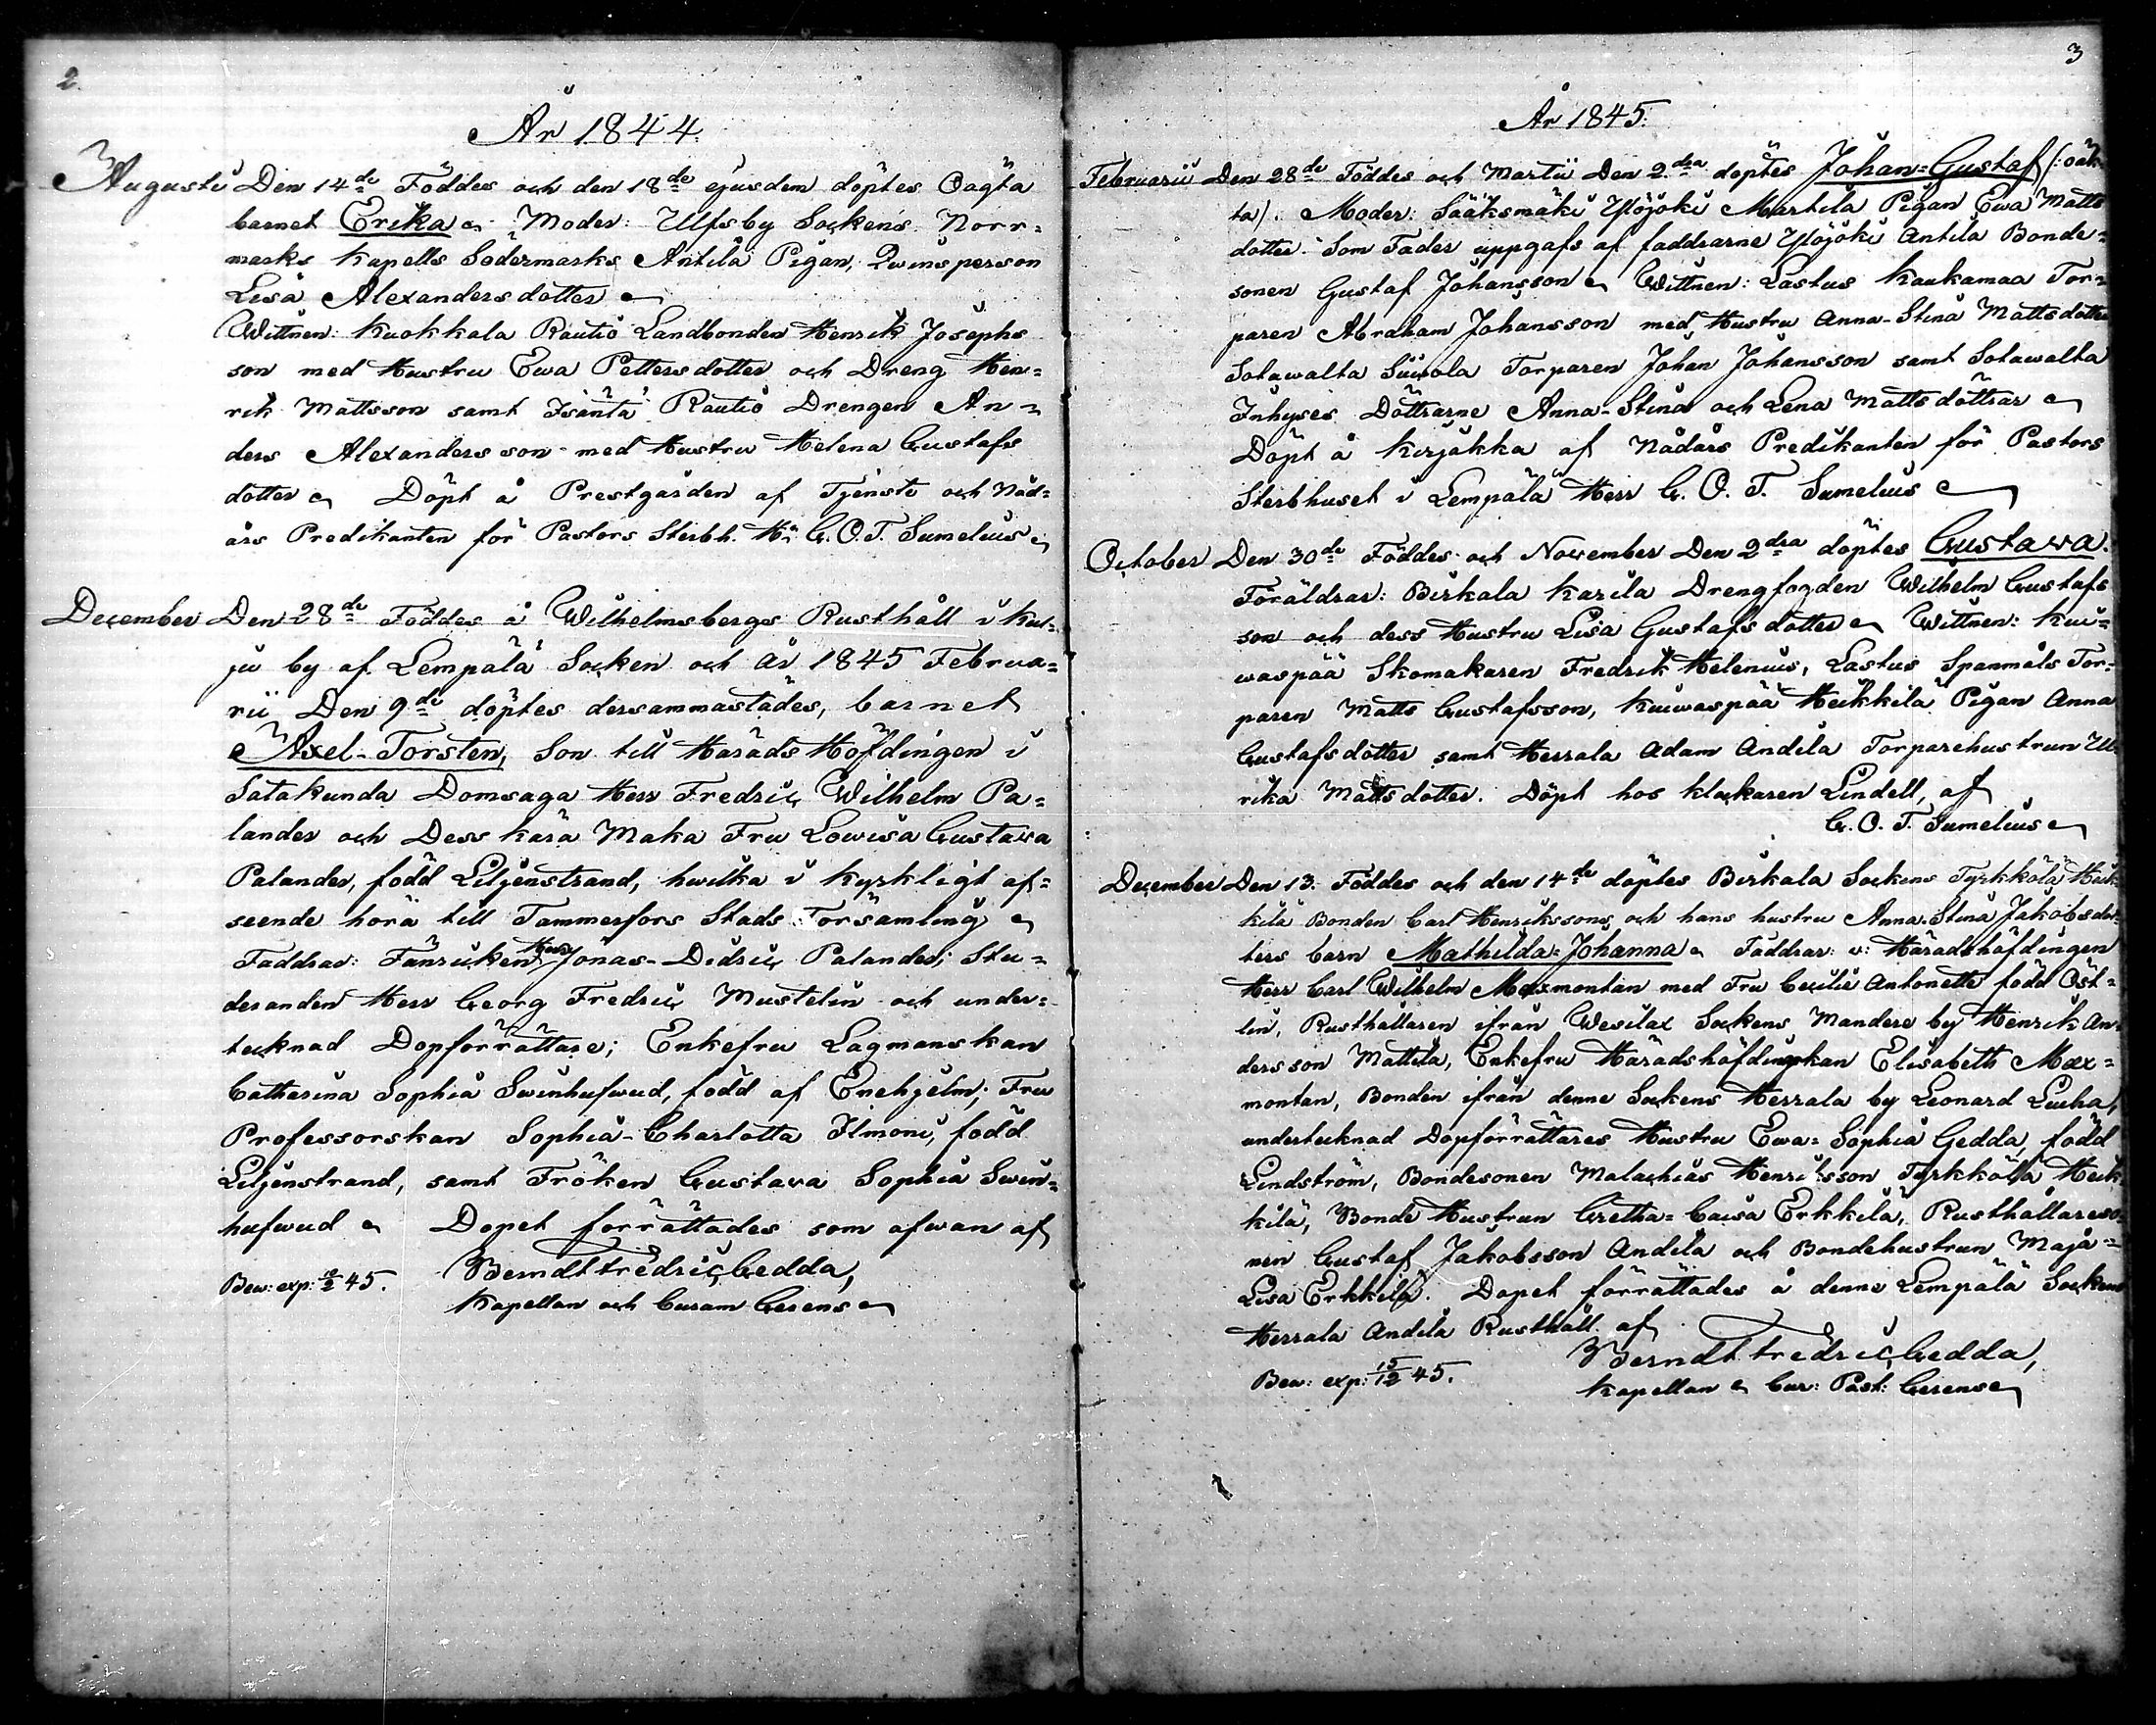 2.
År 1844.
Augusti Den 14de Föddes och den 18de ejusdem döptes Oägta
barnet Erika. Moder: Ulfsby Sockens Norr=
marks Kapells Södermarks Antila Pigan, Qwinsperson
Lisa Alexandersdotter
Wittnen: Kuokkala Rautio Landbonden Henrik Josephs
son med Hustru Ewa Pettersdotter och Dreng Hen=
rik Mattsson samt Isäntä Rautio Drengen An=
ders Alexandersson med Hustru Helena Gustafs
dotter Döpt å Prestgården af Tjenste och Nåd=
års Predikanten för Pastors Sterbh. Hr G. O. T. Sumelius
December Den 28de Föddes å Wilhelmsbergs Rusthåll i Kul=
ju by af Lempälä Socken och år 1845 Februa=
rii Den 9de döptes dersammastädes, barnet
Axel-Torsten, Son till Härads Höfdingen i
Satakunda Domsaga Herr Fredric Wilhelm Pa=
lander och Dess kära Maka Fru Lowisa Gustava
Palander, född Liljenstrand, hwilka i kyrkligt af=
seende höra till Tammerfors Stads Församling
Faddrar: Fänriken Herr Jonas-Didric Palander; Stu=
deranden Herr Georg Fredric Mustelin och under=
tecknad Dopförrättare; Enkefru Lagmanskan
Catharina Sophia Swinhufwud, född af Enehjelm; Fru
Professorskan Sophia-Charlotta Ilmoni, född
Liljenstrand, samt Fröken Gustava Sophia Swin=
hufwud Dopet förrättades som ofwan af
Berndt Fredric Gedda,
Bew: exp: 10/2 45.
Kapellan och Curam Gerens
3
År 1845.
Februarii Den 28de Föddes och Martii Den 2dra döptes Johan=Gustaf (: oäk=
ta). Moder: Sääksmäki Ylöjoki Martila Pigan Ewa Matts
dotter. Som Fader uppgafs af faddrarne Ylöjoki Antila Bonde=
sonen Gustaf Johansson Wittnen: Lastus Kaukamaa Tor=
paren Abraham Johansson med Hustru Anna-Stina Mattsdotter
Sotawalta Torparen Johan Johansson samt Sotawalta
Inhyses Döttrarne Anna-Stina och Lena Mattsdöttrar
Döpt å af Nådårs Predikanten för Pastors
Sterbhuset i Lempälä Herr G. O. T. Sumelius
October Den 30de Föddes och November Den 2dra döptes Gustava.
Föräldrar: Birkala Karila Drengfogden Wilhelm Gustafs
son och dess Hustru Lisa Gustafsdotter Wittnen: Kui=
waspää Skomakaren Fredrik Helenius, Lastus Spanmåls Tor=
paren Matts Gustafsson, Kuiwaspää Heikkilä Pigan Anna
Gustafsdotter samt Herrala Adam Andila Torparehustrun Ul=
rika Mattsdotter. Döpt hos klockaren Lindell, af
G. O. T. Sumelius
December Den 13. Föddes och den 14de döptes Birkala Sockens Tyrkkölä Heik=
kilä Bonden Carl Henrikssons och hans hustru Anna-Stina Jakobsdot=
ters barn Mathilda=Johanna Faddrar: v: Häradshöfdingen
Herr Carl Wilhelm Maxmontan med Fru Cecilie Antonette född Öst=
lin, Rusthållaren ifrån Wesilax Sockens Mandere by Henrik An=
dersson Mattila, Enkefru Häradshöfdingskan Elisabeth Max=
montan, Bonden ifrån denne Sockens Herrala by Leonard Liuha,
undertecknad Dopförrättares Hustru Ewa=Sophia Gedda, född
Lindström, Bondesonen Malachias Henriksson Tyrkkölä Heik=
kilä, Bonde Hustrun Gretha=Caisa Erkkilä, Rusthållareso=
nen Gustaf Jakobsson Andila och Bondehustrun Maja=
Lisa Erkkilä. Dopet förrättades å denne Lempälä Sockens
Herrala Andila Rusthåll af
Berndt Fredric Gedda,
Bew: exp: 15/12 45.
Kapellan & Cur: Past: Gerens